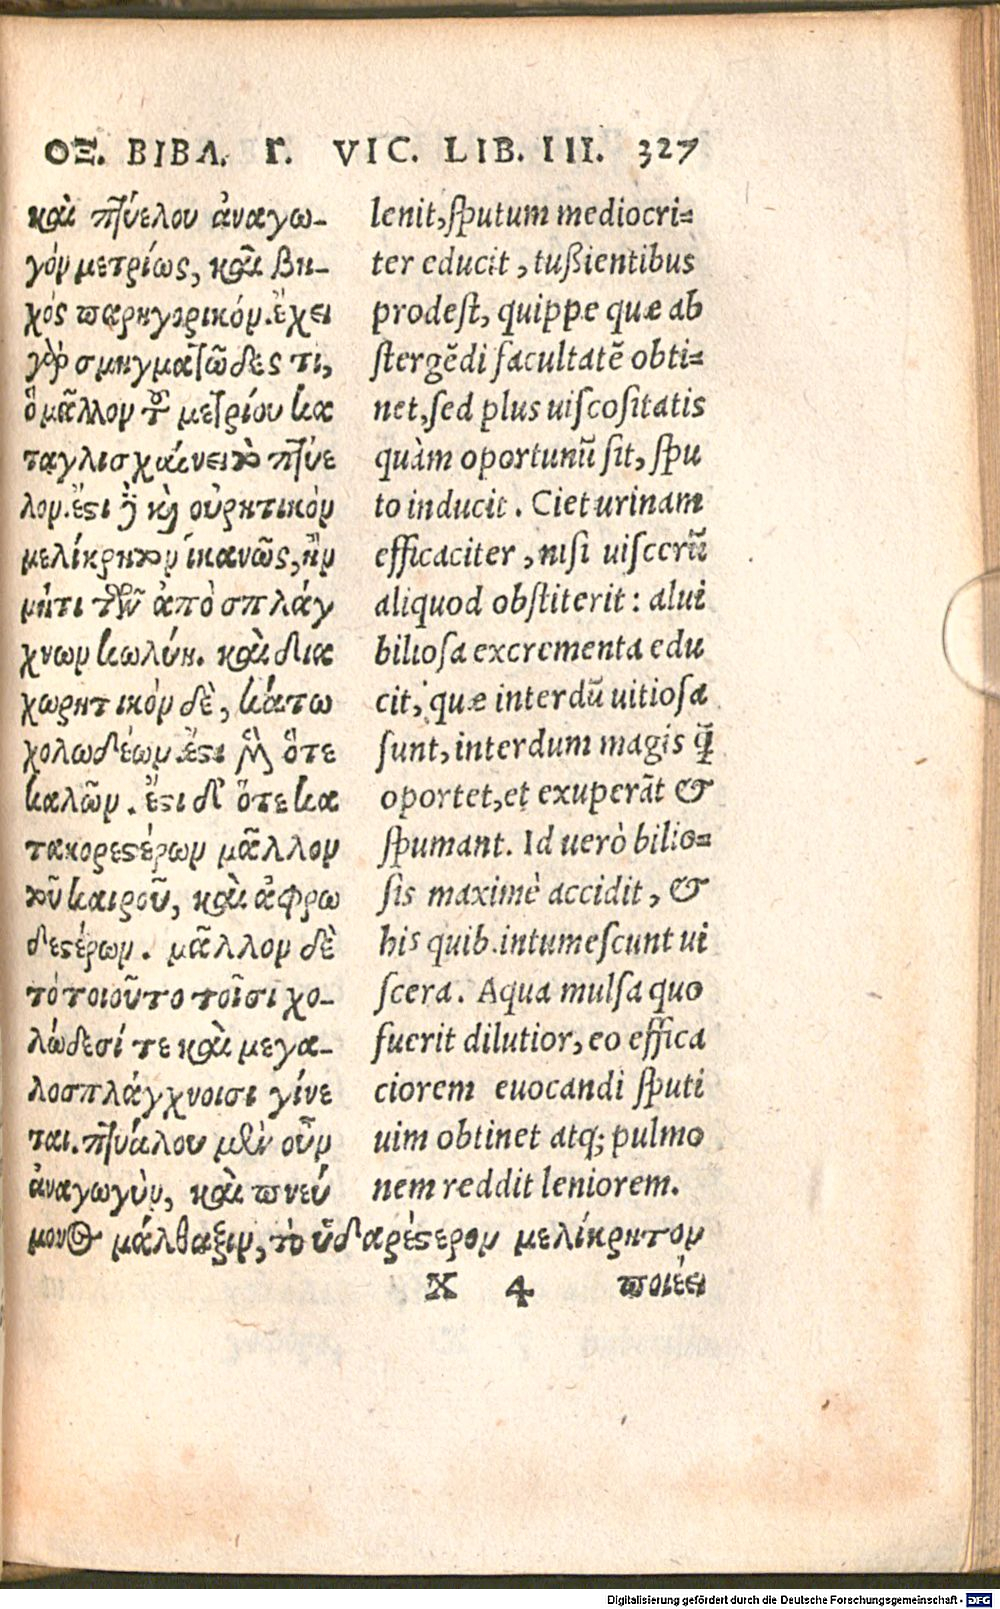 ΟΞ. ΒΙΒΛ. Γ. VIC. LIB. III. 327
καὶ πτύελου ἀναγω-
γὸν μετρίως, καὶ βη-
χὸς παρηγορικόν. ἔχει
γὰρ σμηγματῶδές τι,
ὃ μᾶλλον τοῦ μετρίου κα
ταγλισχραίνει τὸ πτύε
λον. ἔστι δὲ καὶ οὐρητικὸν
μελίκρητον ἱκανῶς, ἢν
μήτι τῶν ἀπὸ σπλάγ
χνων κωλύῃ. καὶ δια
χωρητικὸν δὲ, κάτω
χολωδέων. ἔστι μὲν ὅτε
καλῶν. ἔστι δ' ὅτε κα
τακορεστέρων μᾶλλον
τοῦ καιροῦ, καὶ ἀφρω
δεστέρων. μᾶλλον δὲ
τὸ τοιοῦτο τοῖσι χο-
λώδεσί τε καὶ μεγα-
λοσπλάγχνοισι γίνε
ται. πτυάλου μὲν οὖν
ἀναγωγὴν, καὶ πνεύ
μονος μάλθαξιν, τὸ ὑδαρέστερον μελίκρητον
lenit, sputum mediocri=
ter educit, tußientibus
prodest, quippe quæ ab
stergēdi facultatē obti=
net, sed plus uiscositatis
quàm oportunū sit, spu
to inducit. Ciet urinam
efficaciter, nisi uiscerū
aliquod obstiterit: alui
biliosa excrementa edu
cit, quæ interdū uitiosa
sunt, interdum magis q̃
oportet, et exuperāt &
spumant. Id uerò bilio=
sis maximè accidit, &
his quib. intumescunt ui
scera. Aqua mulsa quo
fuerit dilutior, eo effica
ciorem euocandi sputi
uim obtinet atq; pulmo
nem reddit leniorem.
X 4 ποιέει
Digitalisierung gefördert durch die Deutsche Forschungsgemeinschaft - DFG